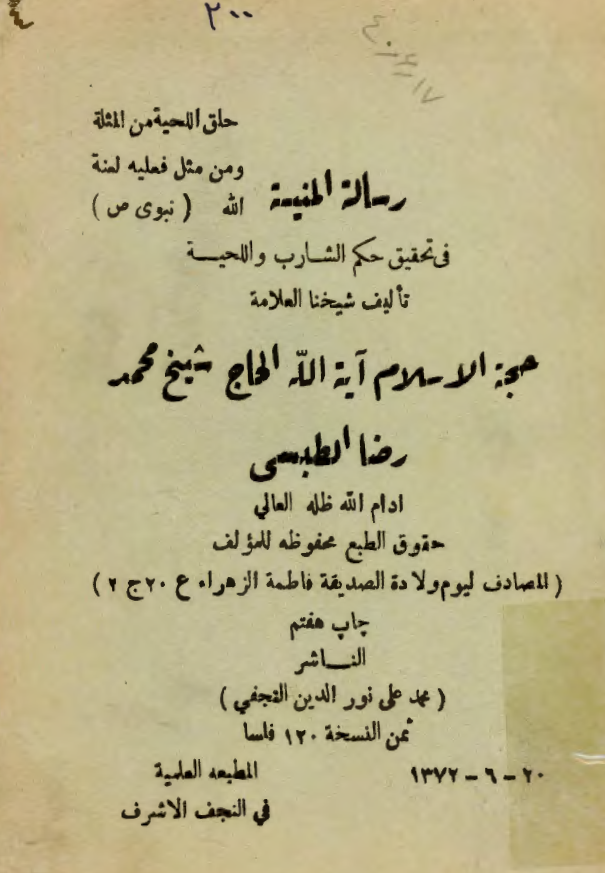 ٢٠٠
حلق اللحية من المثلة
ومن مثل فعليه لعنة
الله ( نبوى ص )
رسالة المنية
فى تحقيق حكم الشارب واللحيـــة
تأليف شيخنا العلامة
حجة الاسلام آية الله الحاج شيخ محمد
رضا الطبسى
ادام الله ظله العالي
حقوق الطبع محفوظه للمؤلف
( المصادف ليوم ولادة الصديقة فاطمة الزهراء ع ٢٠ ج ٢ )
چاپ هفتم
النـــاشر
( محمد على نور الدين النجفي )
ثمن النسخة ١٢٠ فلسا
٢٠ - ٦ - ١٣٧٢
المطبعه العلمية
في النجف الاشرف